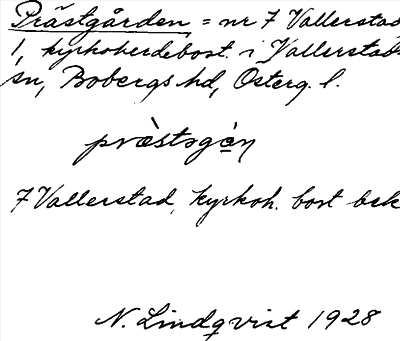 Prästgården = nr 7 Vallerstad
1, kyrkoherdebost. i Vallerstads
sn, Bobergs hd, Österg. l.
præ̀stsgɑ́n
7 Vallerstad, kyrkoh. bost bek
N. Lindqvist 1928